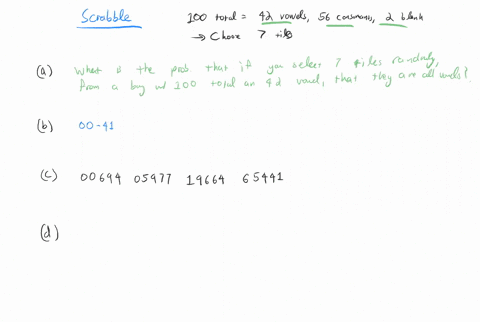 Scrabble
100 total = 42 vowels, 56 consonants, 2 blank
→ Choose 7 tiles
(a) What is the prob. that if you select 7 tiles randomly,
from a bag w/ 100 total an 42 vowel, that they are all vowels?
(b) 00-41
(c) 00694 05977 19664 65441
(d)